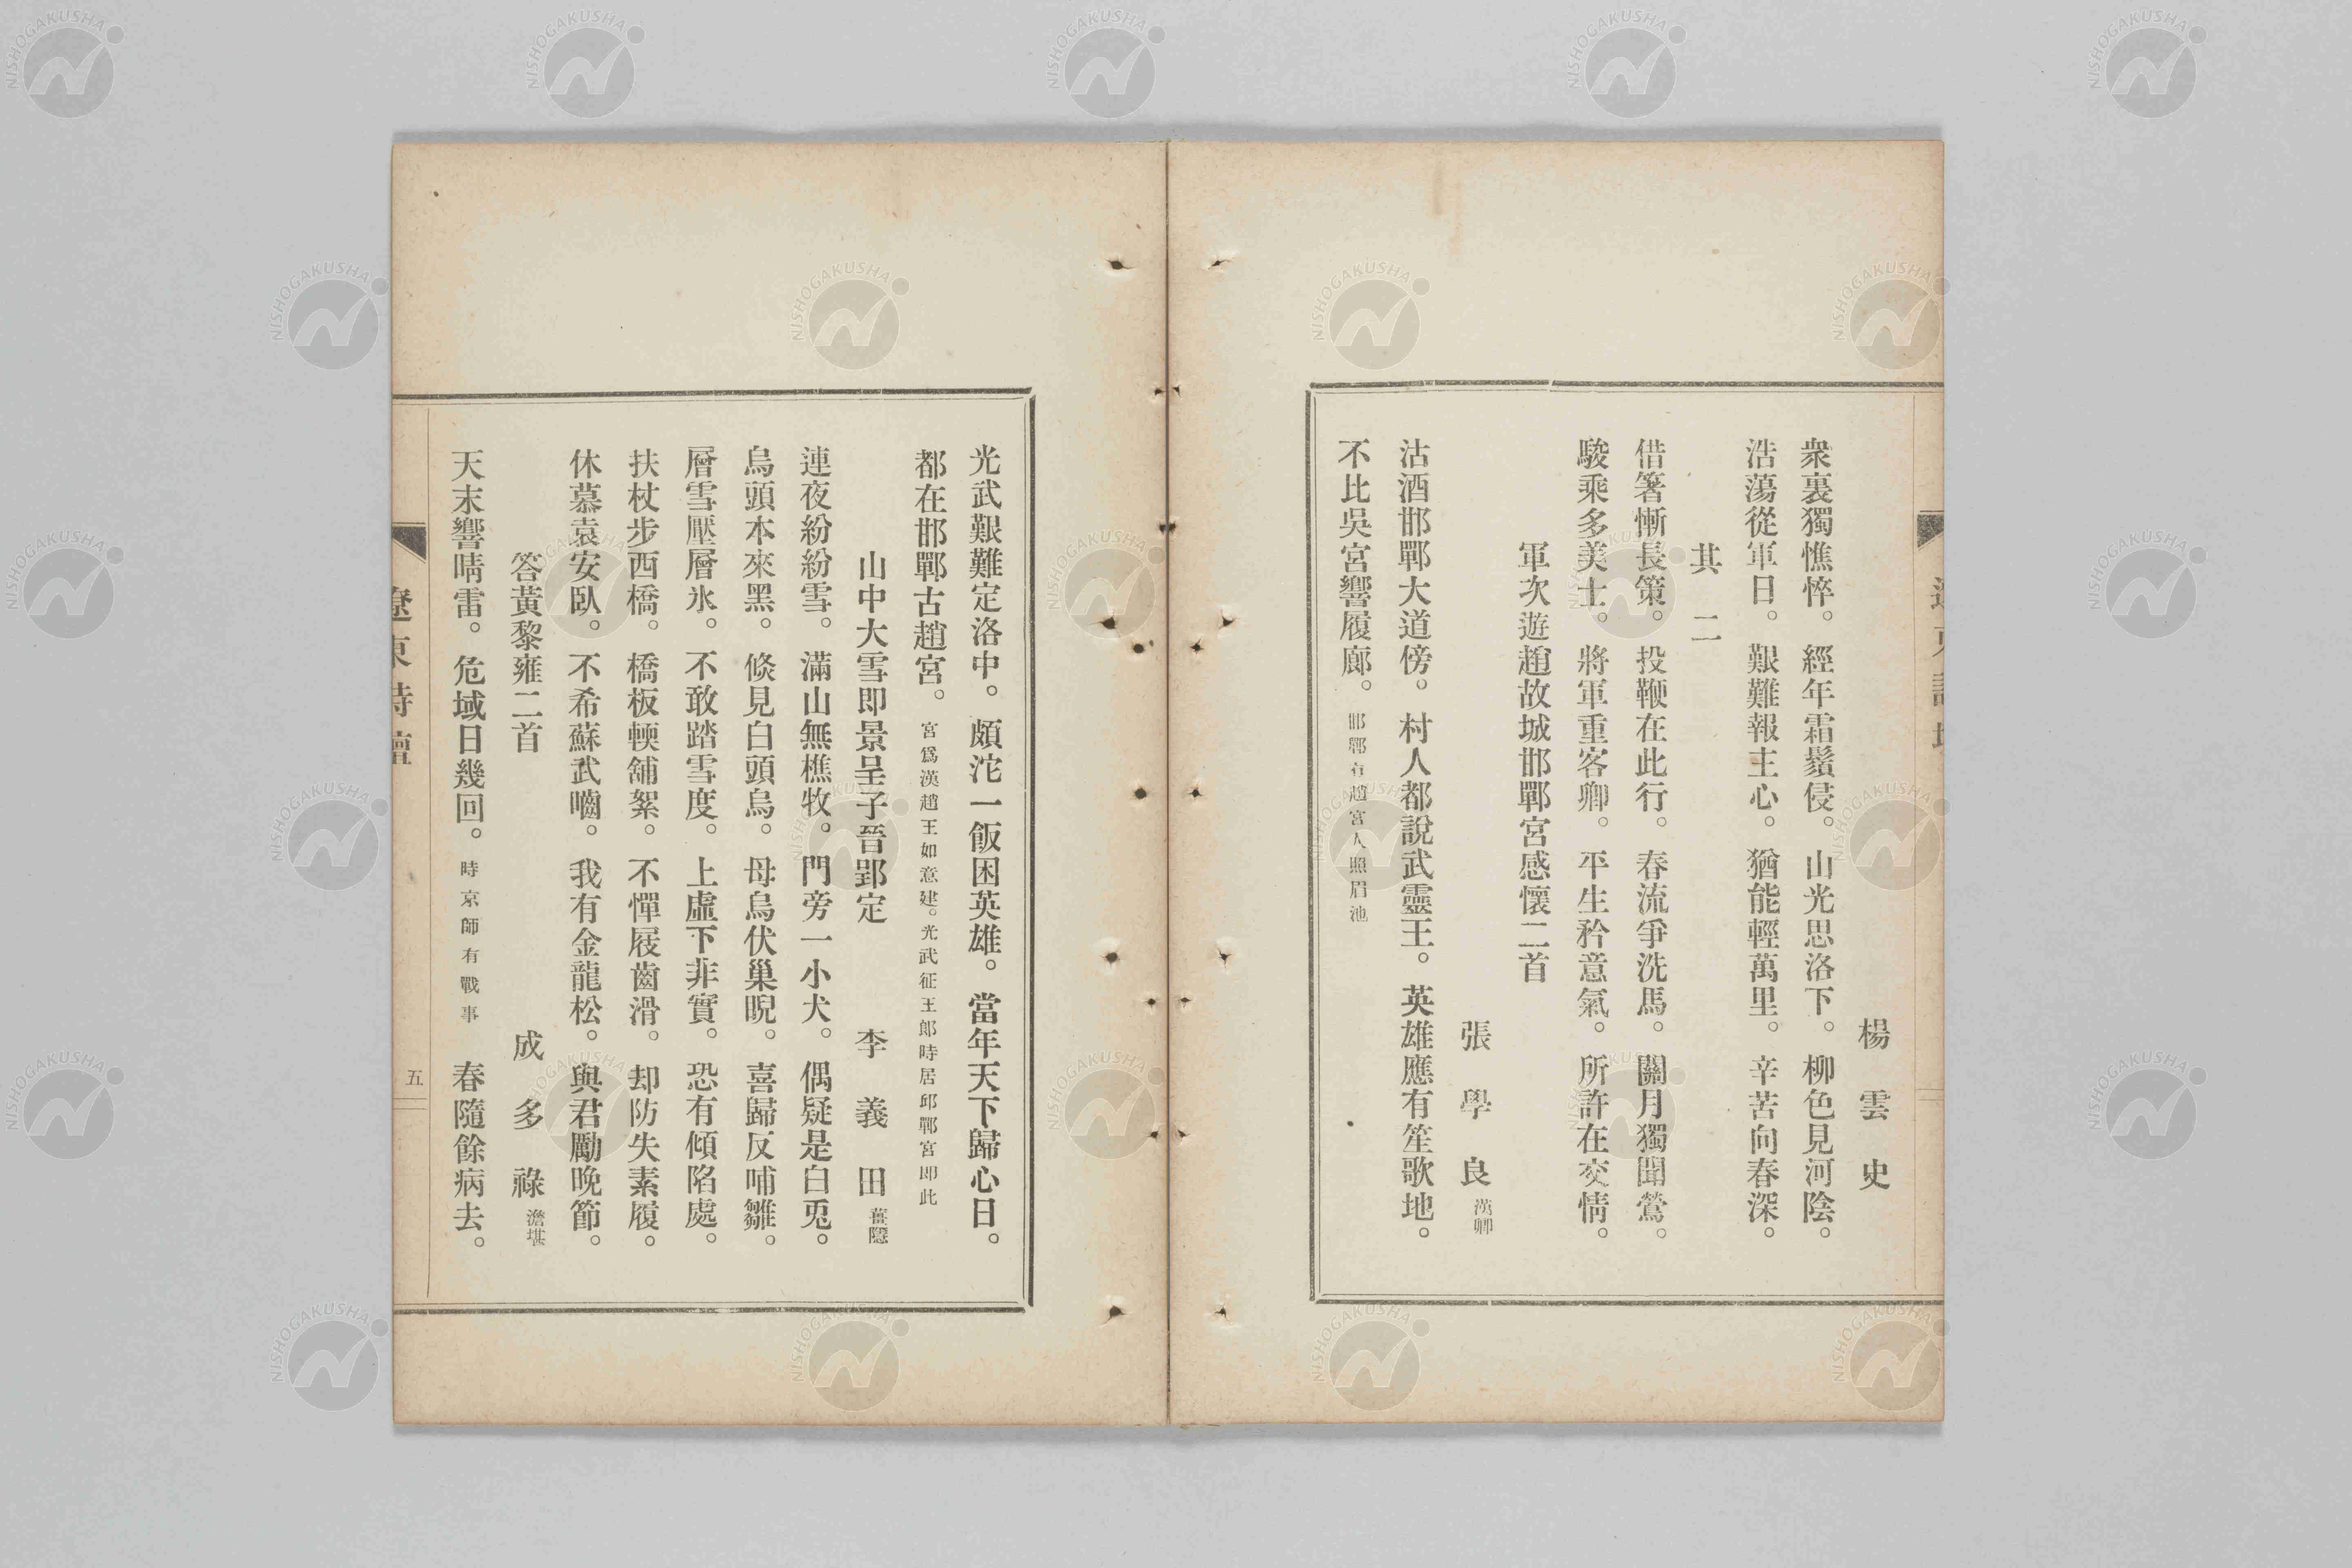 楊雲史
衆裏獨憔悴。經年霜鬢侵。山光思洛下。柳色見河陰。
浩蕩從軍日。艱難報主心。猶能輕萬里。辛苦向春深。
其二
借箸慚長策。投鞭在此行。春流爭洗馬。關月獨聞鶯。
駿乘多美士。將軍重客卿。平生矜意氣。所許在交情。
軍次遊趙故城邯鄲宮感懷二首
張學良 漢卿
沽酒邯鄲大道傍。村人都說武靈王。英雄應有笙歌地。
不比吳宮響屧廊。邯鄲有趙宮人照眉池
光武艱難定洛中。頗沱一飯困英雄。當年天下歸心日。
都在邯鄲古趙宮。宮爲漢趙王如意建。光武征王郎時居邱鄲宮即此
山中大雪即景呈子晉郢定 李義田 薑隱
連夜紛紛雪。滿山無樵牧。門旁一小犬。偶疑是白兎。
烏頭本來黑。倏見白頭烏。母烏伏巢睨。喜歸反哺雛。
層雪壓層氷。不敢踏雪度。上虛下非實。恐有傾陷處。
扶杖步西橋。橋板輭舖絮。不憚屐齒滑。却防失素履。
休慕袁安臥。不希蘇武嚙。我有金龍松。與君勵晚節。
答黃黎雍二首 成多祿 澹堪
天末響晴雷。危域日幾回。時京師有戰事 春隨餘病去。
遼東詩壇
五
NISHOGAKUSHA